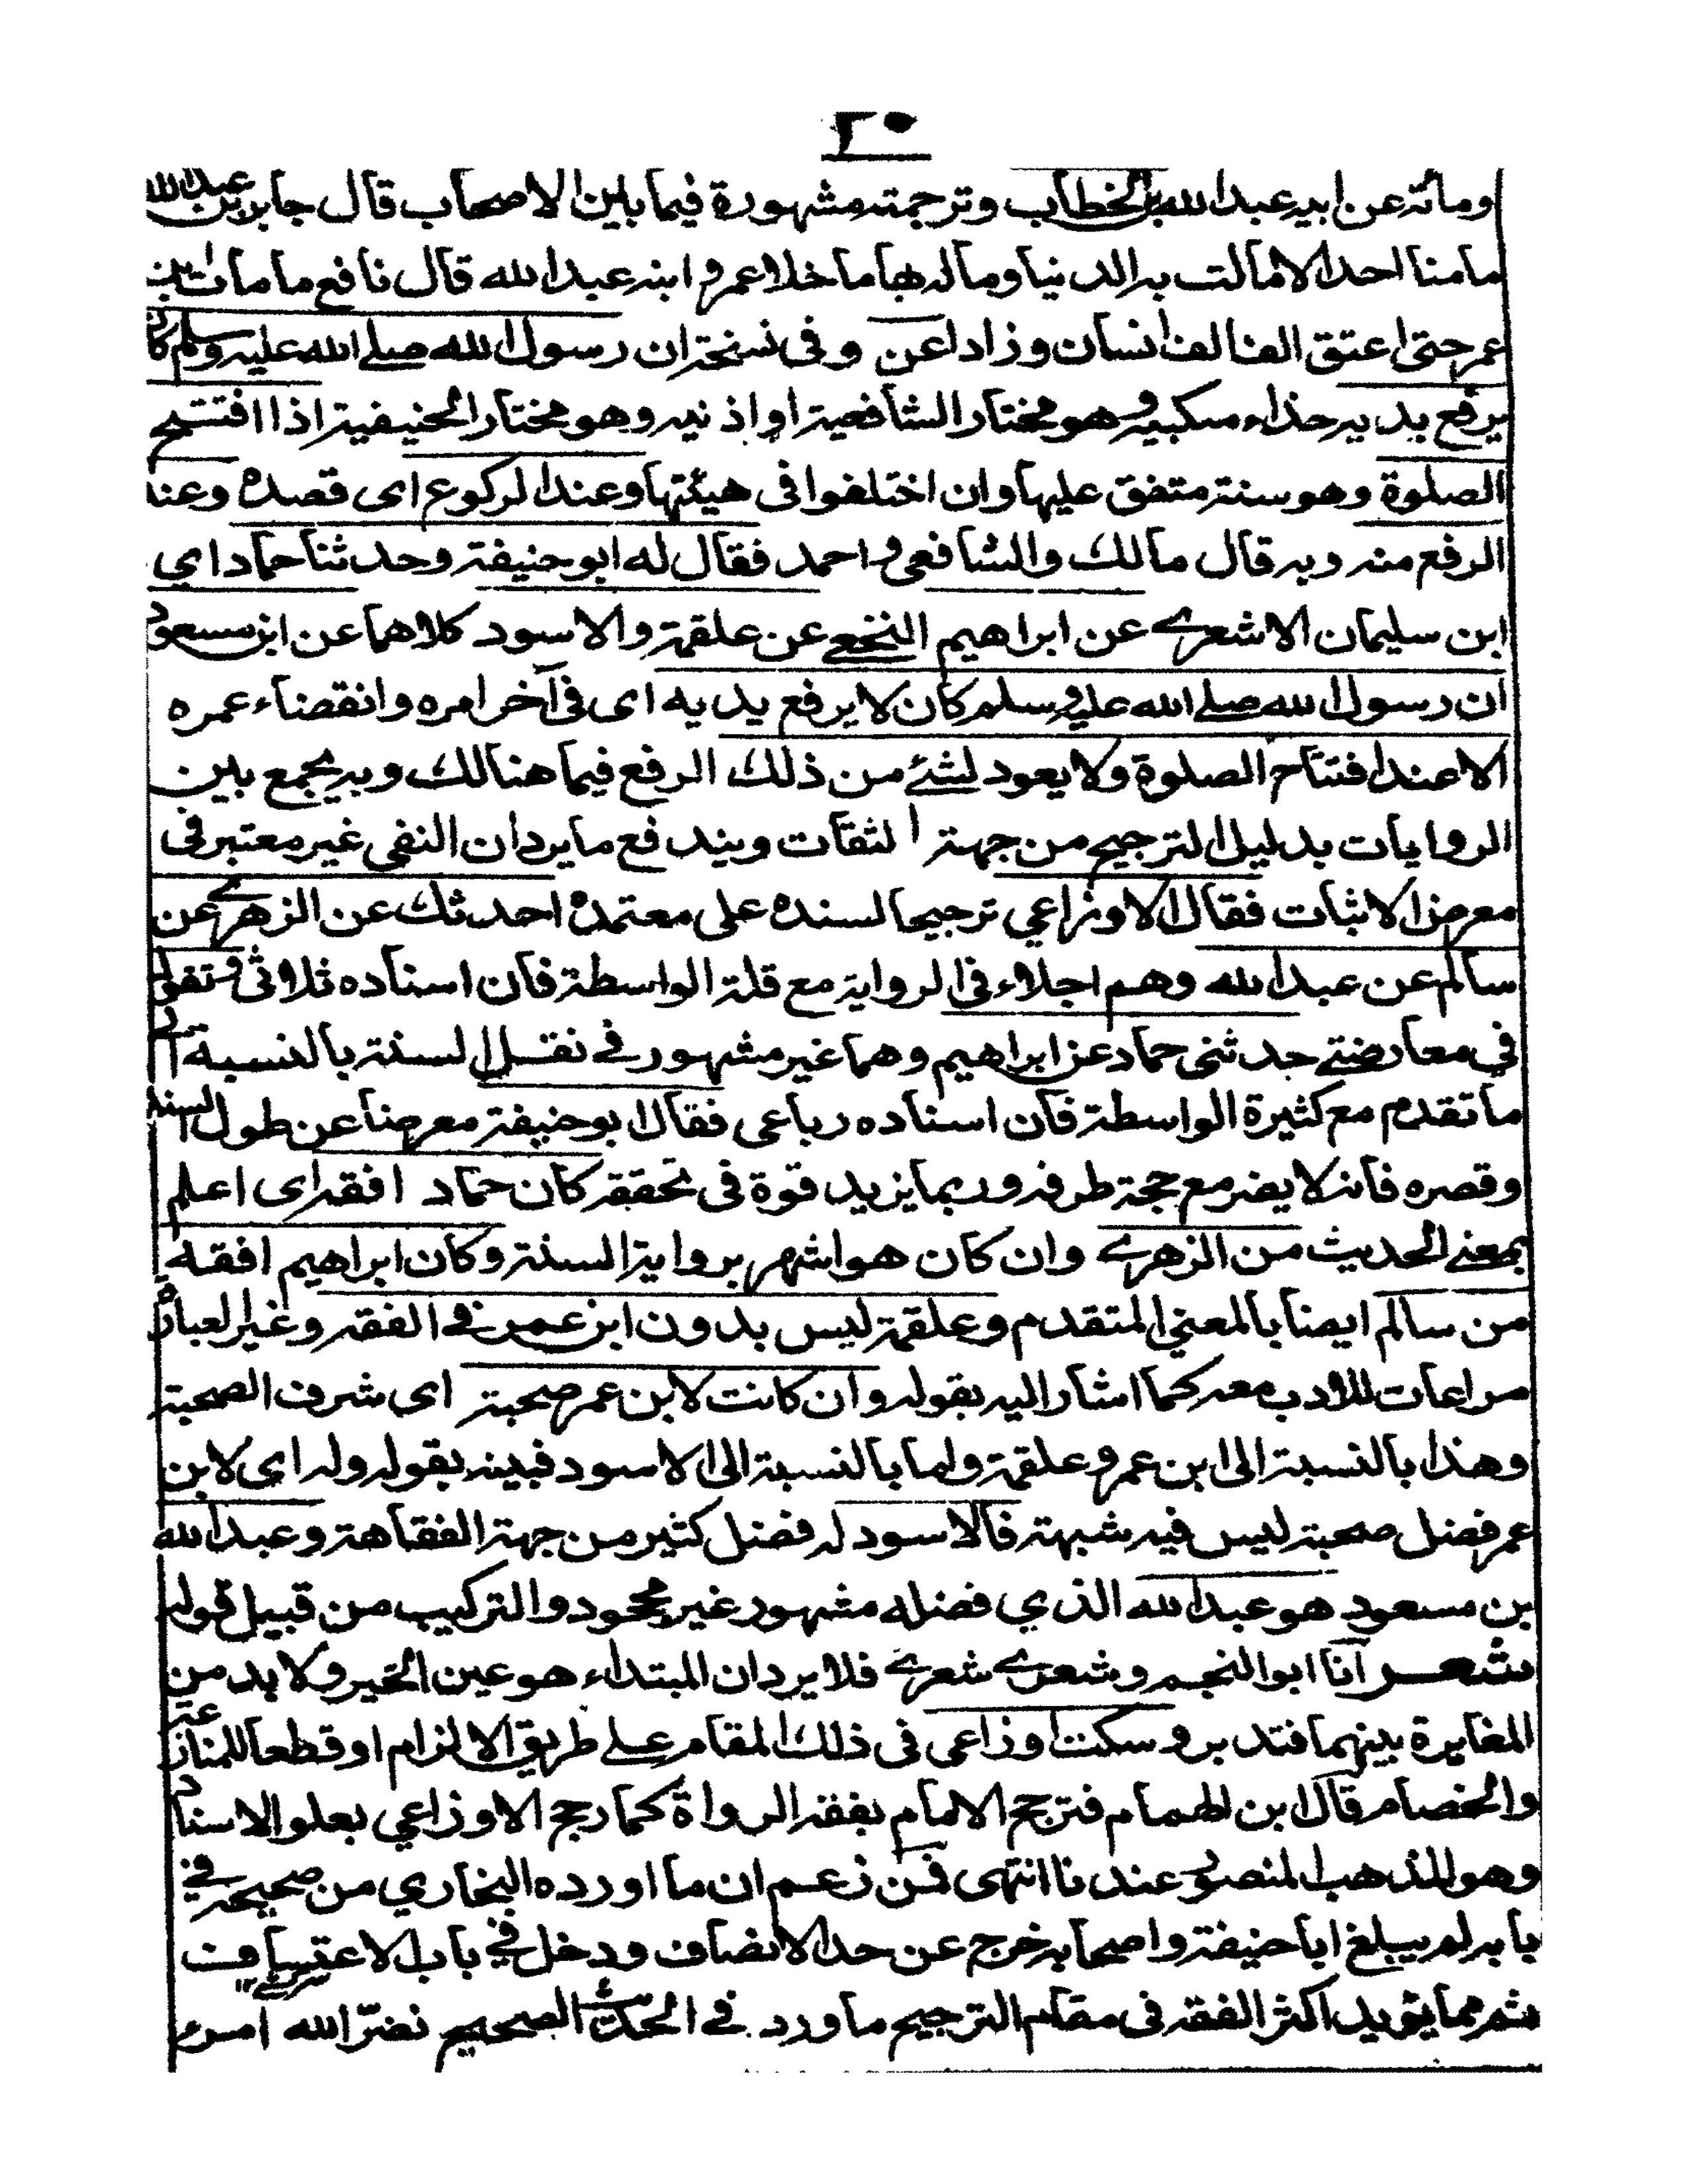 ٢٠
ومائة عن ابيه عبد الله بن الخطاب وترجمته مشهورة فيما بين الاصحاب قال جابر بن عبد الله
ما منا احد الا مالت به الدنيا ومال بها ما خلا عمر و ابنه عبد الله قال نافع ما مات ابن
عمر حتى اعتق الف الف انسان وزاد اعن وفى نسخة ان رسول الله صلے الله عليه وسلم كان
يرفع يديه حذاء منكبيه وهو مختار الشافعية او اذنيه وهو مختار الحنيفية اذا افتتح
الصلوة وهو سنة متفق عليها وان اختلفوا فى هيئتها وعند الركوع اى قصده وعند
الرفع منه وبه قال مالك والشافعى و احمد فقال له ابو حنيفة وحدثنا حماد اي
ابن سليمان الاشعرے عن ابراهيم النخعے عن علقمة والاسود كلاهما عن ابن مسعود
ان رسول الله صلے الله عليه وسلم كان لا يرفع يديه اى فى آخر امره وانقضاء عمره
الا عند افتتاح الصلوة ولا يعود لشئے من ذلك الرفع فيما هنالك وبه يجمع بين
الروايات بدليل الترجيح من جهة الثقات ويندفع ما يرد ان النفى غير معتبر فى
معرض الاثبات فقال الاوزاعي ترجيحا لسنده على معتمده احدثك عن الزهرے عن
سالم عن عبد الله وهم اجلاء فى الرواية مع قلة الواسطة فان اسناده ثلاثى وتقول
في معارضتے حدثنى حماد عن ابراهيم وهما غير مشهور فے نقل السنة بالنسبة الى
ما تقدم مع كثيرة الواسطة فان اسناده رباعى فقال ابو حنيفة معرضا عن طول السند
وقصره فانه لا يضر مع حجة طرفه وربما يزيد قوة فى تحققه كان حماد افقه اى اعلم
بمعنے الحديث من الزهرے وان كان هو اشهر برواية السنة وكان ابراهيم افقه
من سالم ايضا بالمعنى المتقدم وعلقمة ليس بدون ابن عمر فے الفقه وغير العبارة
مراعات للادب معه كما اشار اليه بقوله وان كانت لابن عمر صحبة اى شرف الصحبة
وهذا بالنسبة الى ابن عمر وعلقمة واما بالنسبة الى الاسود فبينه بقوله وله اى لابن
عمر فضل صحبة ليس فيه شبهة فالاسود له فضل كثير من جهة الفقاهة وعبد الله
بن مسعود هو عبد الله الذي فضله مشهور غير محجود والتركيب من قبيل قوله
شعر آنا ابو النجم وشعرے شعرے فلا يرد ان المبتداء هو عين الخير ولا بد من
المغايرة بينهما فتدبر وسكت اوزاعى فى ذلك المقام علے طريق الالزام او قطعا للمنازعة
والخصام قال ابن الهمام فترجح الامام بفقه الرواة كما رجح الاوزاعي بعلو الاسناد
وهو المذهب المنصور عندنا انتهى فمن زعم ان ما اورده البخاري من صحيحه في
بابه لم يبلغ ابا حنيفة واصحابه خرج عن حد الانصاف ودخل في باب الاعتساف
ثم مما يؤيد اكثر الفقه فى مقام الترجيح ما ورد فے الحديث الصحيح نضّر الله امرء